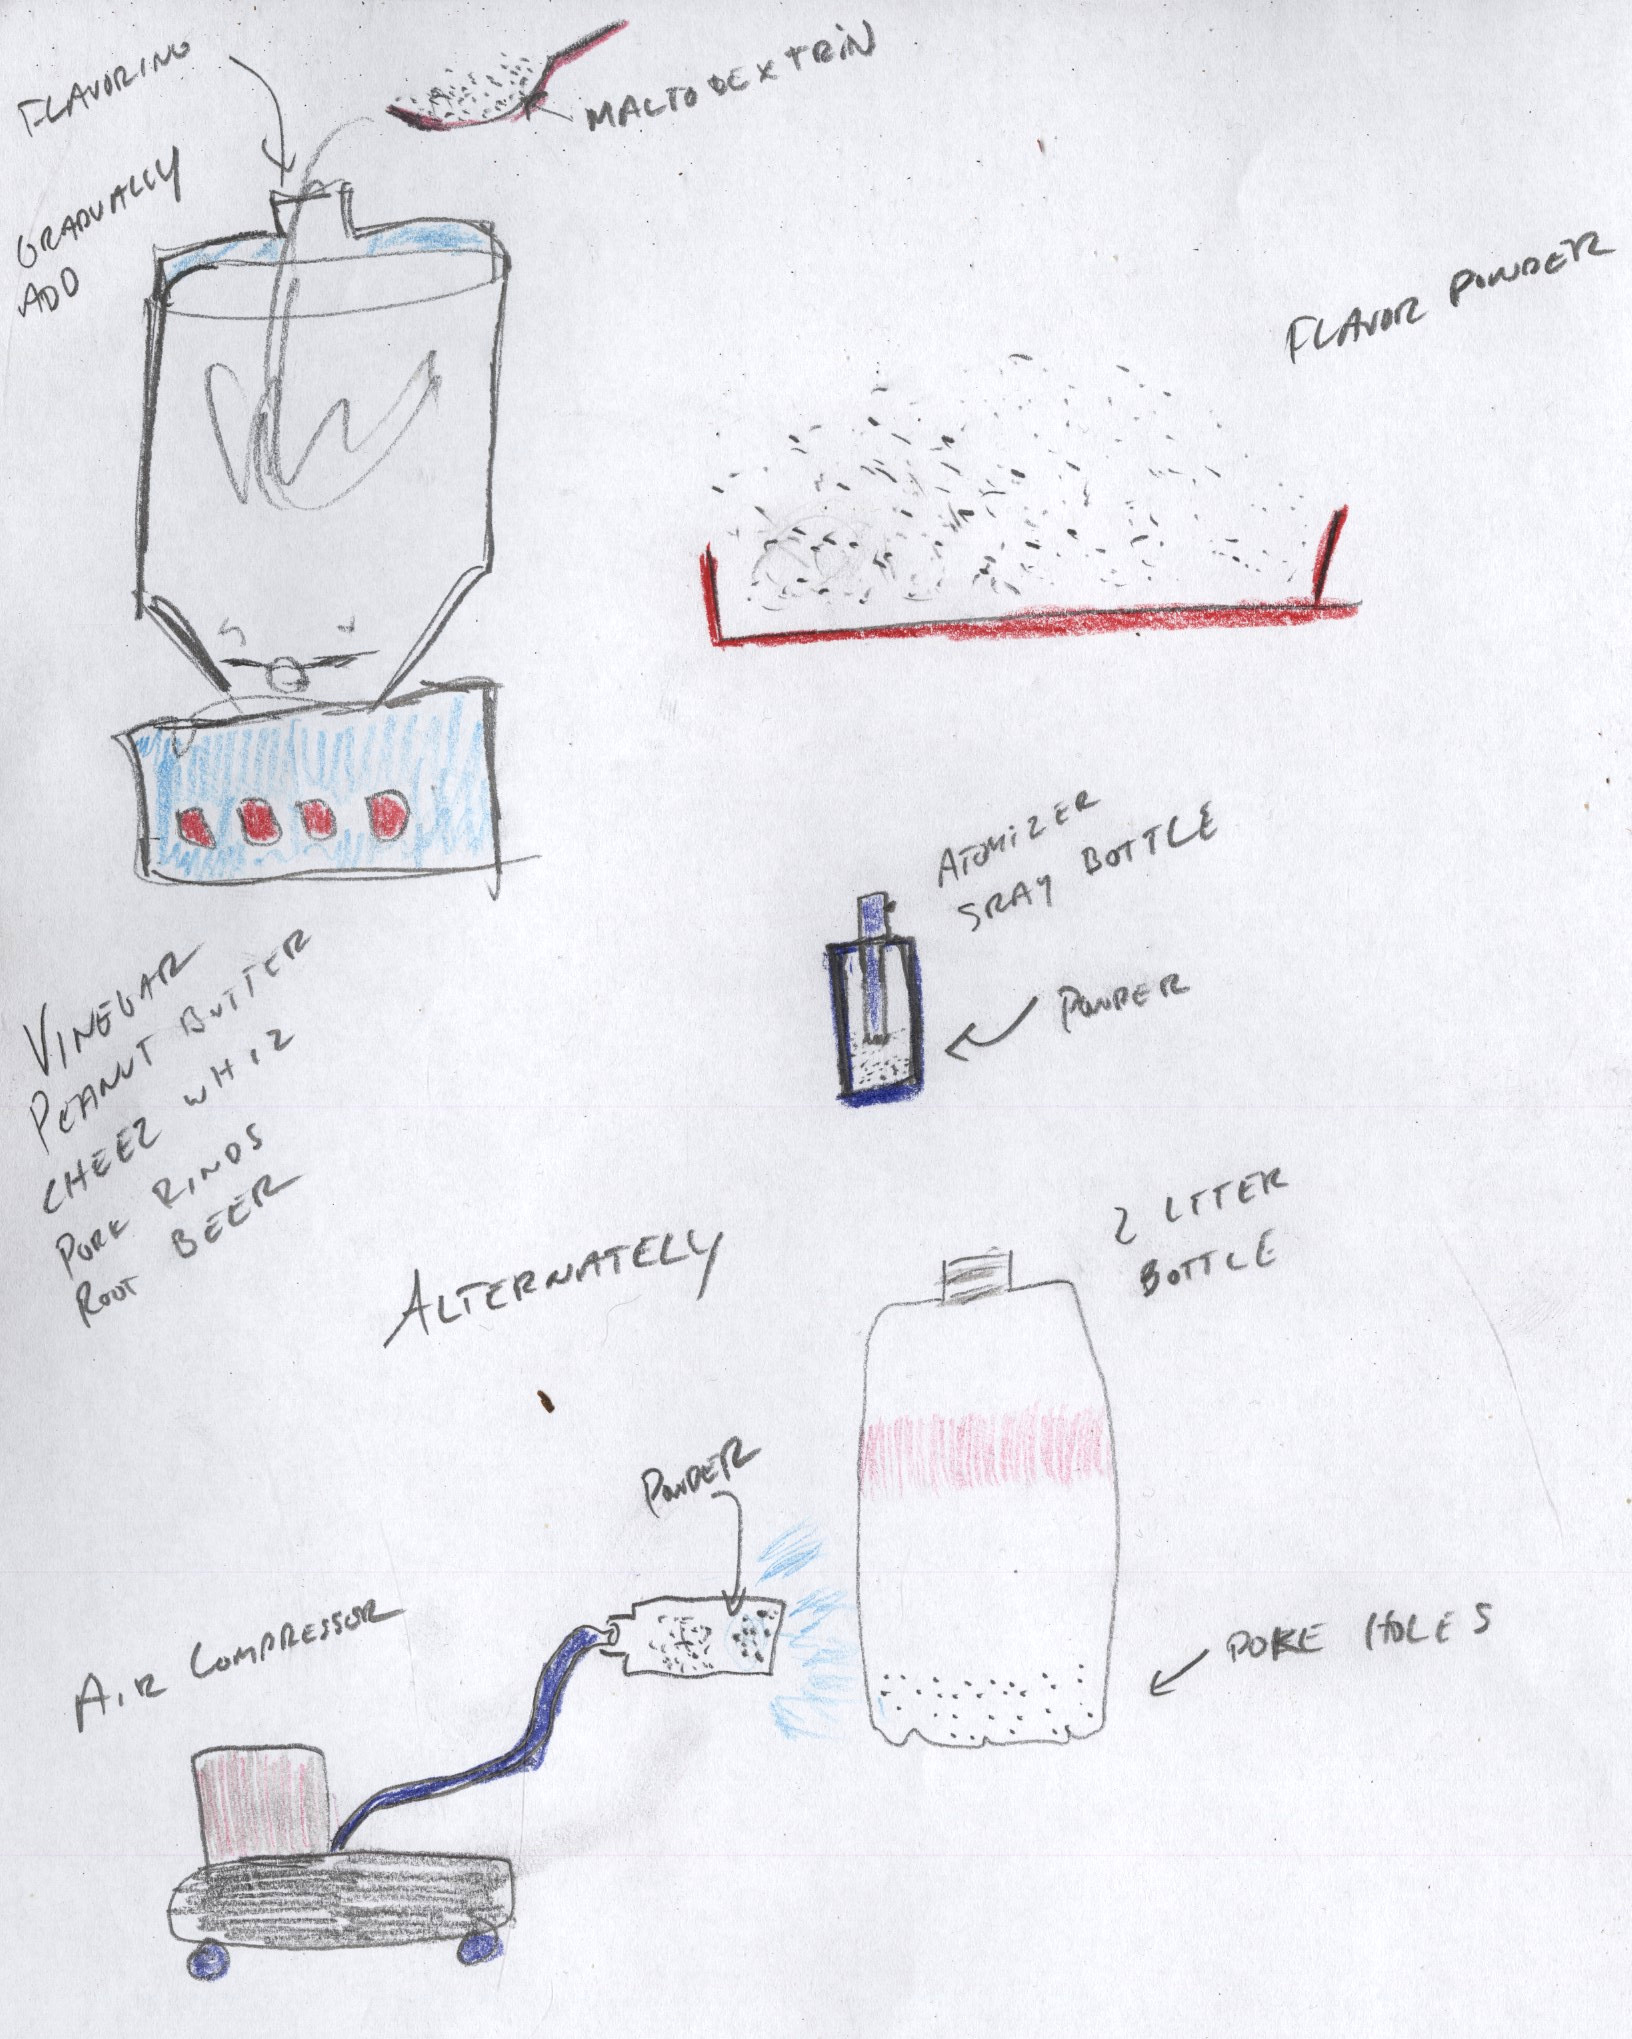 FLAVORING
MALTODEXTRIN
GRADUALLY
ADD
FLAVOR POWDER
ATOMIZER
SRAY BOTTLE
POWDER
VINEGAR
PEANUT BUTTER
CHEEZ WHIZ
PORK RINDS
ROOT BEER
ALTERNATELY
2 LITTER
BOTTLE
POWDER
AIR COMPRESSOR
POKE HOLES